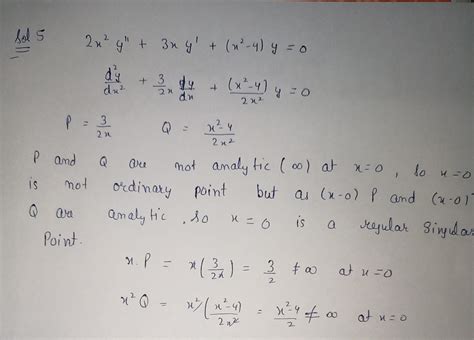 Sol 5
2x² y'' + 3x y' + (x²-4) y = 0
d²y/dx² + 3/2x dy/dx + (x²-4)/2x² y = 0
P = 3/2x    Q = x²-4/2x²
P and Q are not analytic (∞) at x=0, so x=0
is not ordinary point but as (x-0) P and (x-0)²
Q are analytic. So x = 0 is a regular Singular
Point.
x.P = x(3/2x) = 3/2 ≠ ∞ at x=0
x²Q = x²(x²-4/2x²) = x²-4/2 ≠ ∞ at x=0